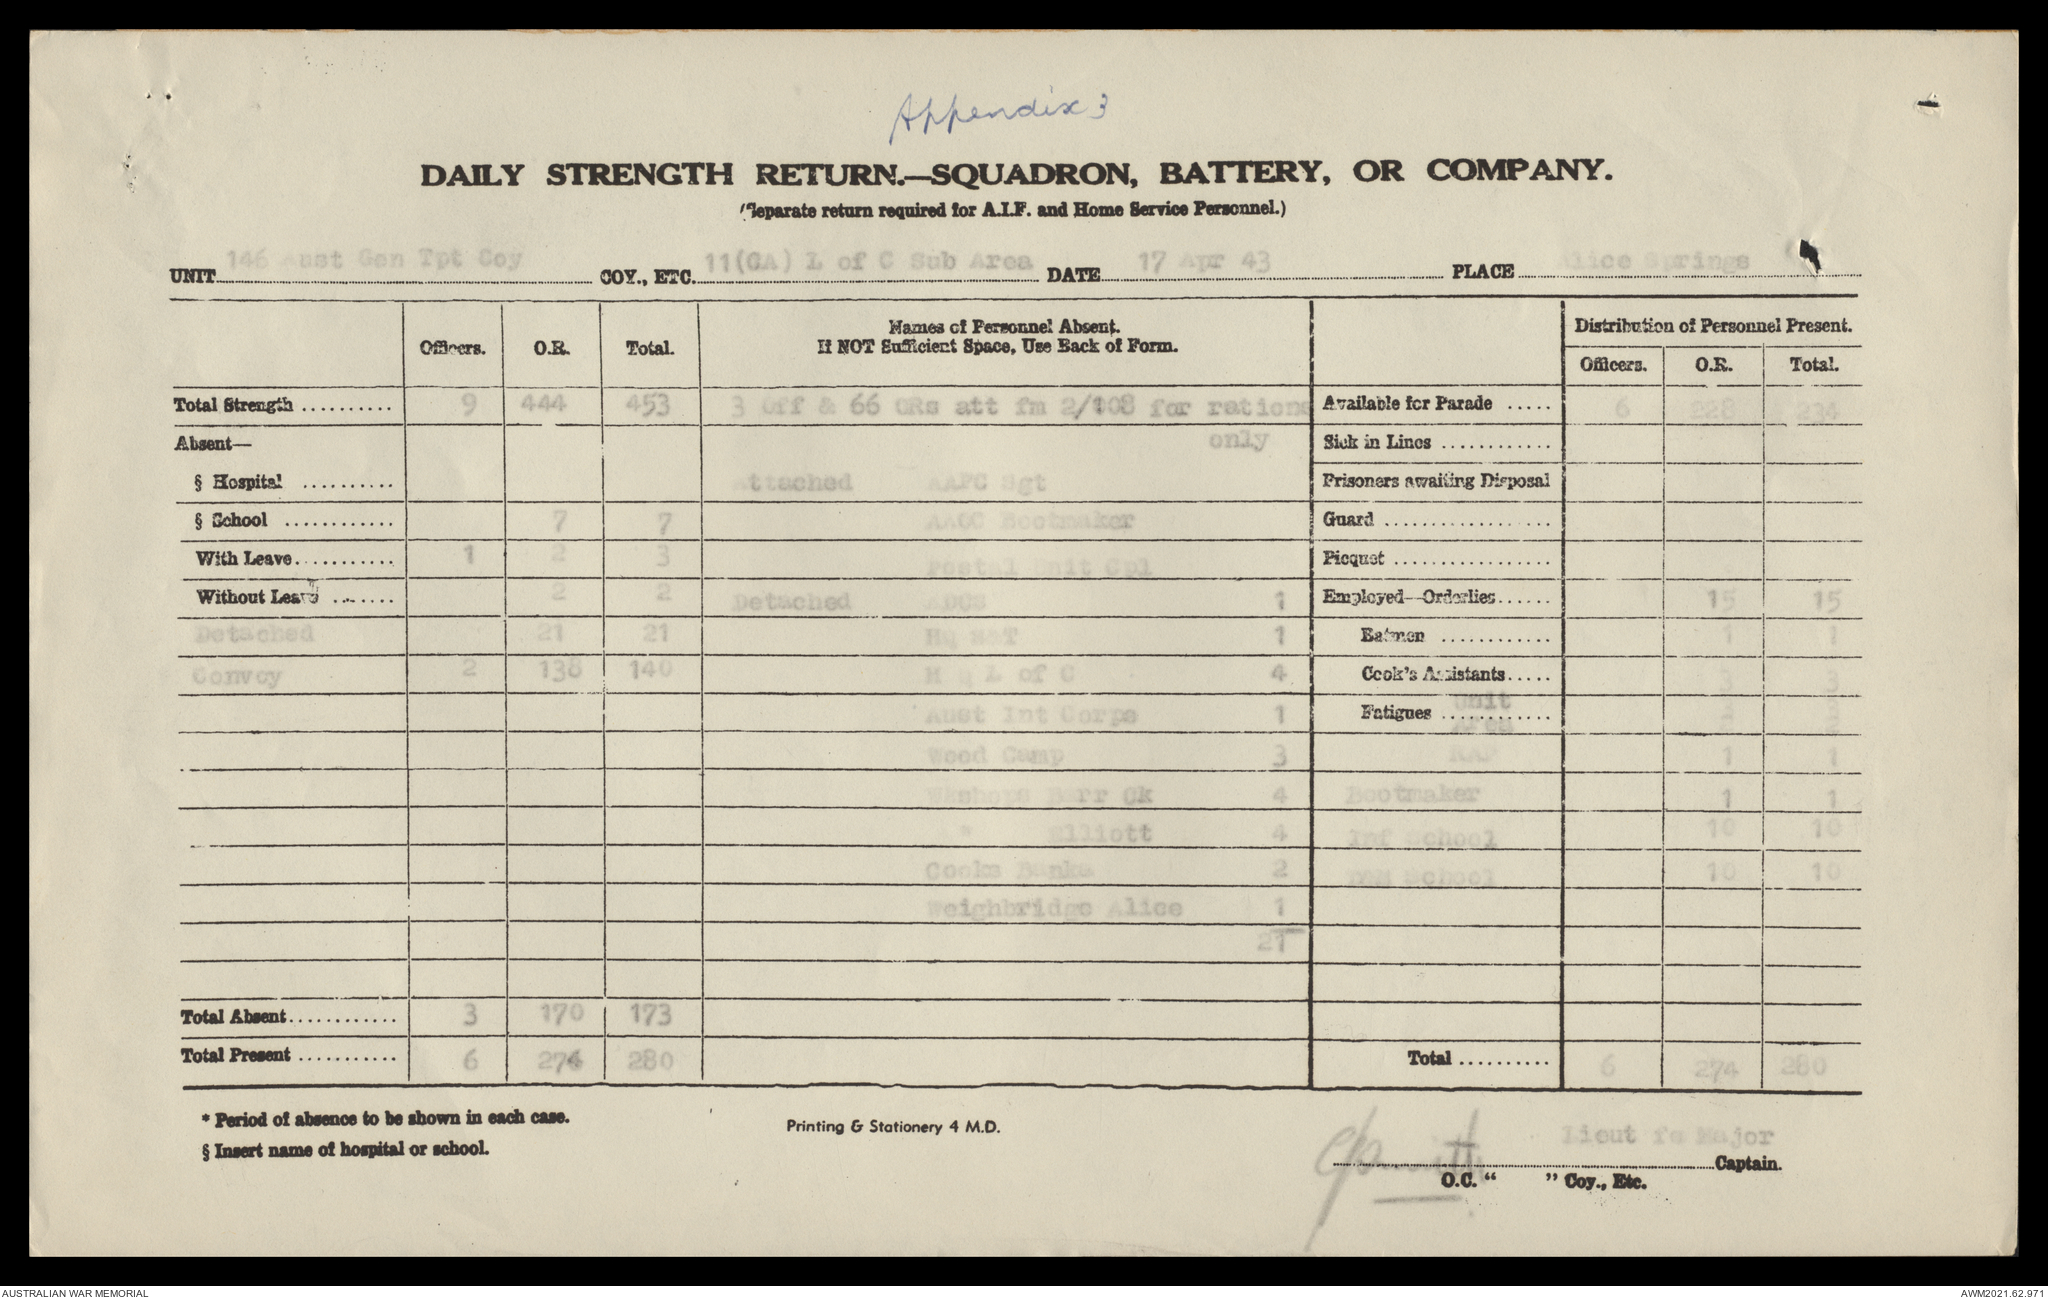 Appendix 3
DAILY STRENGTH RETURN.—SQUADRON, BATTERY, OR COMPANY.
(Separate return required for A.I.F. and Home Service Personnel.)
UNIT 146 Aust Gen Tpt Coy COY., ETC. 11(CA) L of C Sub Area DATE 17 Apr 43 PLACE Alice Springs
Officers. O.R. Total. Names of Personnel Absent. If NOT Sufficient Space, Use Back of Form. Distribution of Personnel Present.
Officers. O.R. Total.
Total Strength .......... 9 444 453 3 Off & 66 ORs att fm 2/108 for rations Available for Parade ..... 6 228 234
Absent— only Sick in Lines ............
§ Hospital .......... Attached AAPC Sgt Prisoners awaiting Disposal
§ School ............ 7 7 AAOC Bootmaker Guard ..................
With Leave........... 1 2 3 Postal Unit Cpl Picquet .................
Without Leave ........ 2 2 Detached ADOS 1 Employed—Orderlies...... 15 15
Detached 21 21 HQ S&T 1 Batmen ............ 1 1
Convoy 2 138 140 H Q L of C 4 Cook's Assistants..... 3 3
Aust Int Corps 1 Fatigues ............ Unit
Area 2 2
Wood Camp 3 RAP 1 1
Wkshops Barr Ck 4 Bootmaker 1 1
" Elliott 4 Inf School 10 10
Cooks Banka 2 School 10 10
Weighbridge Alice 1
21
Total Absent............ 3 170 173
Total Present ........... 6 274 280 Total .......... 6 274 280
* Period of absence to be shown in each case.
§ Insert name of hospital or school.
Printing & Stationery 4 M.D.
Lieut fo Major
Captain.
O.C. " " Coy., Etc.
AUSTRALIAN WAR MEMORIAL
AWM2021.62.971